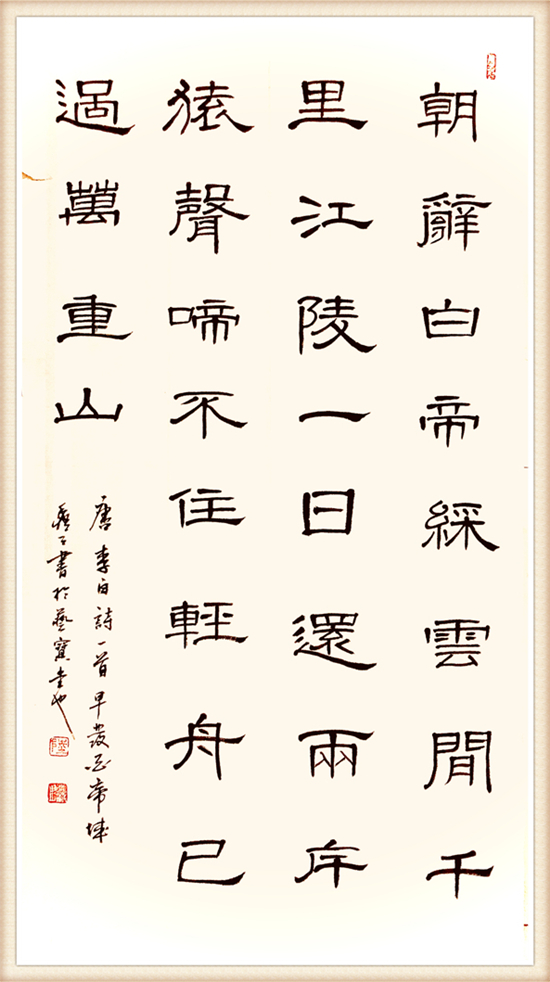 朝辭白帝綵雲閒千
里江陵一日還兩岸
猿聲啼不住輕舟已
過萬重山
唐李白詩一首早發白帝城
書於藝寶堂也